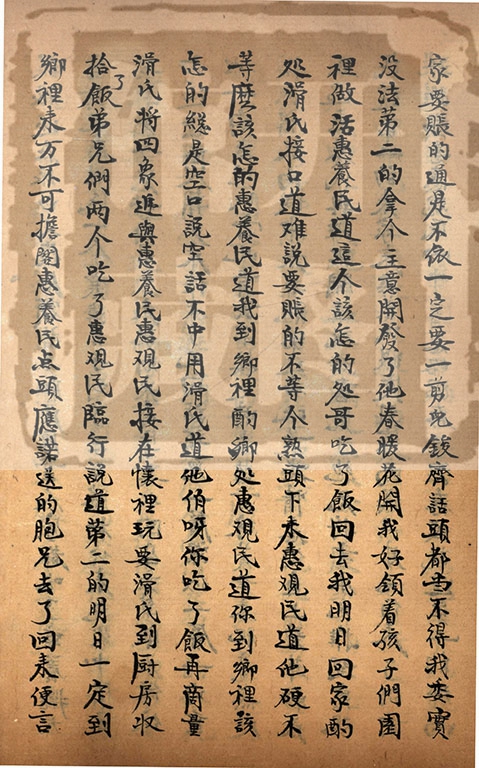 家要賬的通是不依一定要一剪兒鉸齊話頭都当不得我委實
没法第二的拿个主意開發了他春暖花開我好領着孩子們園
裡做活惠養民道這个該怎的処哥吃了飯回去我明日回家酌
処滑氏接口道难説要賬的不等个熟頭下来惠观民道他硬不
等麽該怎的惠養民道我到鄉裡酌処惠观民道你到鄉裡該
怎的総是空口説空話不中用滑氏道他伯呀你吃了飯再商量
滑氏将四象遞與惠養民惠观民接在懷裡玩耍滑氏到厨房収
拾了飯弟兄們两个吃了惠观民臨行説道第二的明日一定到
鄉裡来万不可擔閣惠養民点頭應諾送的胞兄去了回来便言